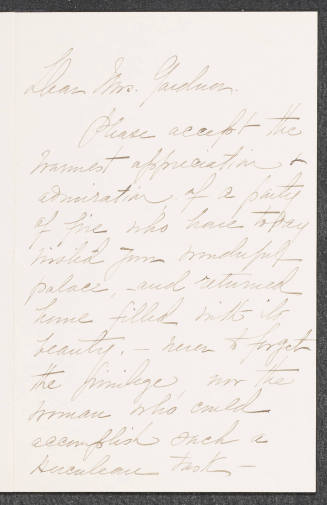 Dear Mrs. Gardner.
Please accept the
warmest appreciation &
admiration of a party
of five who have to-day
visited your wonderful
palace, - and returned
home filled with its
beauty, - never to forget
the privilege, nor the
woman who could
accomplish such a
Herculean task -